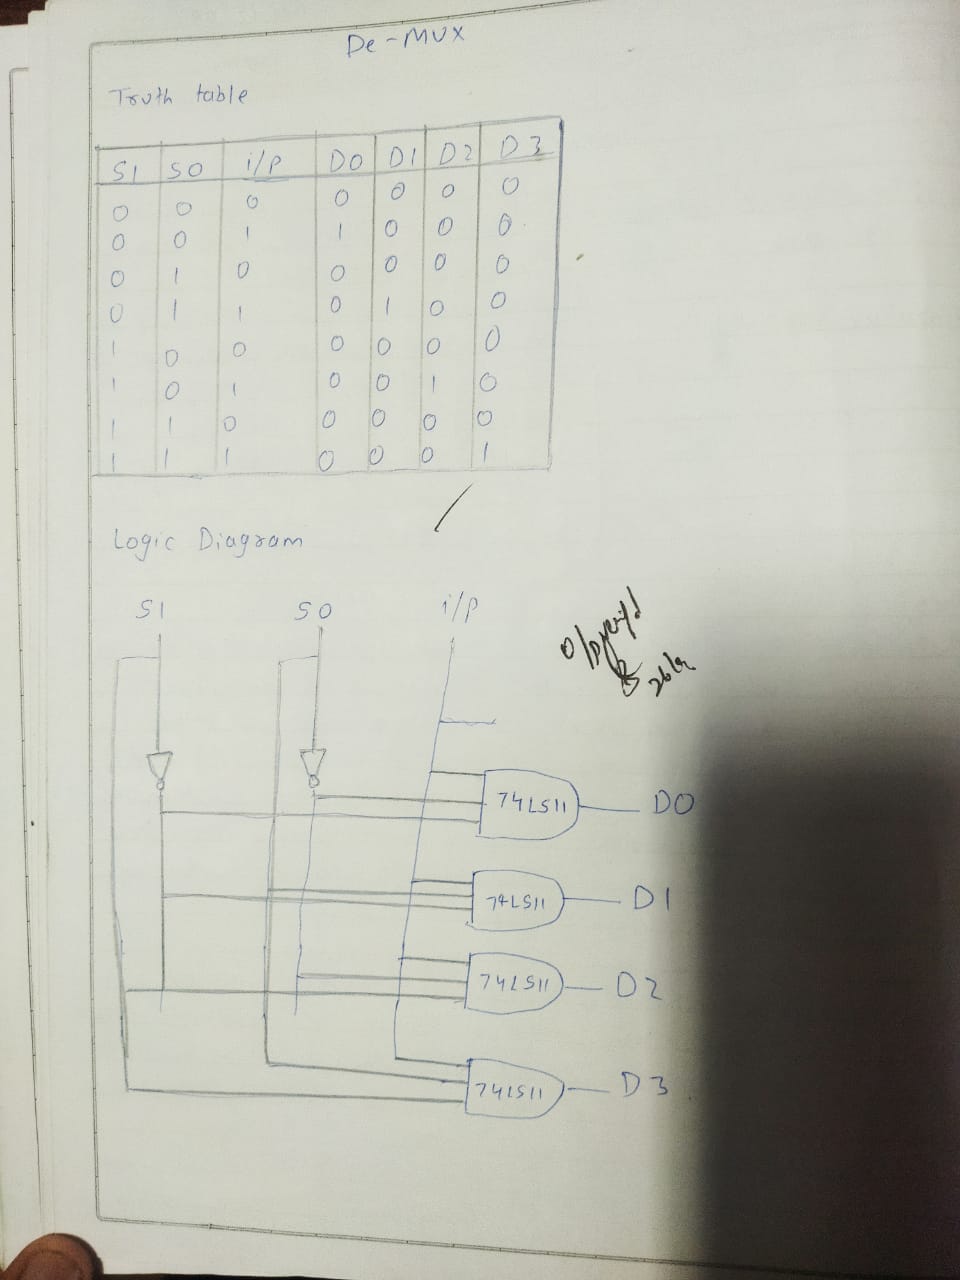 De-MUX
Truth table
S1 S0 i/p D0 D1 D2 D3
0 0 0 0 0 0 0
0 0 1 1 0 0 0
0 1 0 0 0 0 0
0 1 1 0 1 0 0
1 0 0 0 0 0 0
1 0 1 0 0 1 0
1 1 0 0 0 0 0
1 1 1 0 0 0 1
Logic Diagram
S1 S0 i/p
74LS11 D0
74LS11 D1
74LS11 D2
74LS11 D3